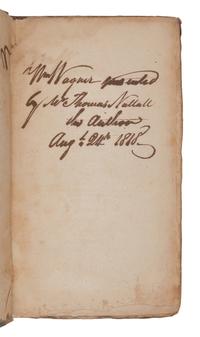 Wm Wagner presented
by Mr Thomas Nuttall
the Author
Augt 24th 1818